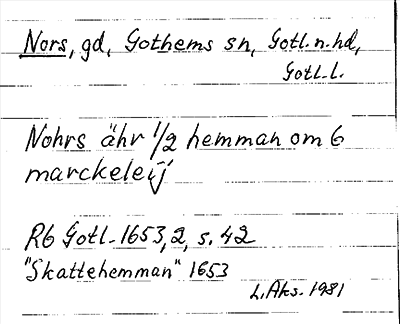 Nors, gd, Gothems sn, Gotl. n. hd,
Gotl. l.
Nohrs ähr 1/2 hemman om 6
marckeleij
RG Gotl. 1653, 2, s. 42
"Skattehemman" 1653
L. Aks. 1981